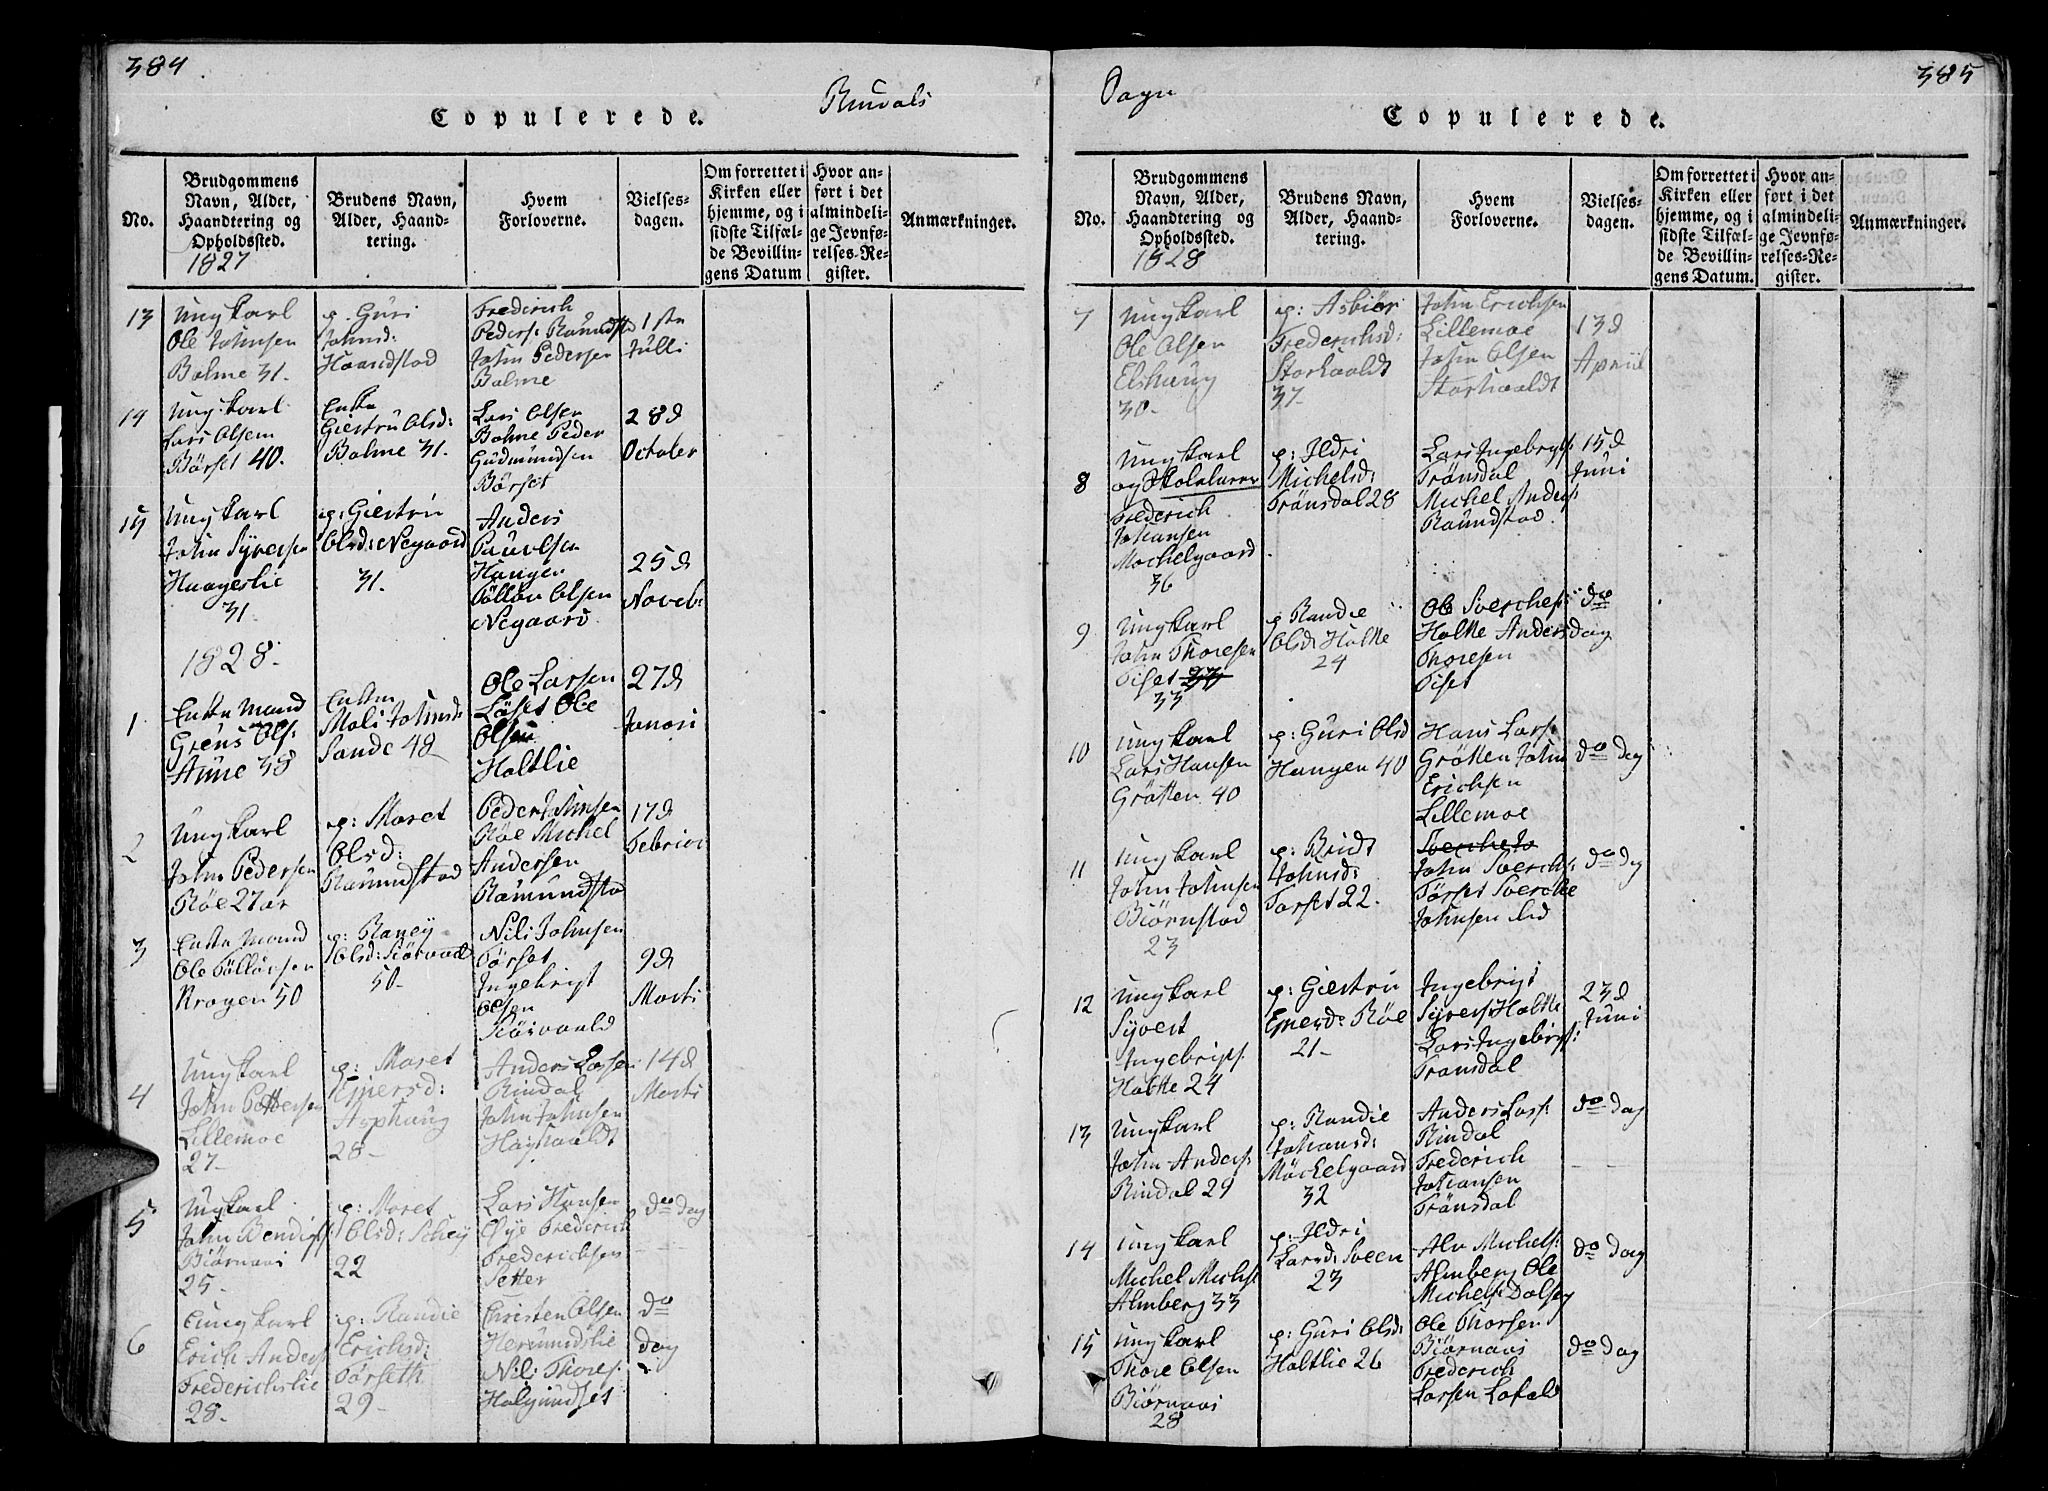 384
Rindals
Copulerede.
No.
Brudgommens Navn, Alder, Haandtering og Opholdssted.
1827
Brudens Navn, Alder, Haandtering.
Hvem Forloverne.
Vielsesdagen.
Om forrettet i Kirken eller hjemme, og i sidste Tilfælde Bevillingens Datum
Hvor anført i det almindelige Jevnførelses-Register.
Anmærkninger.
13
Ungkarl
Ole Johnsen
Bolme 31.
p. Guri
Johnsd:
Haandstad
Frederich
Peders: Raundstd
John Pedersen
Bolme
1ste
Julli
14
Ung:karl
Lars Olsen
Börset 40.
Enke
Giestru Olsd:
Bolme 31.
Lars Olsen
Bolme Peder
Gudmundsen
Börset
28d
October
15
Ungkarl
John Syversen
Haugeslie
31.
p: Giestru
Olsd: Negaard
31.
Anders
Paulsen
Haugen
Töllöv Olsen
Negaard
25d
Noveb:
1828.
1
Enke Mand
Grens Ols:
Aune 38
Enken
Mali Johnsd:
Sande 48
Ole Larsen
Löset Ole
Olsen
Holtlie
27d
Januari
2
Ungkarl
John Pedersen
Röe 27 ar
p: Maret
Olsd:
Raundstad
Peder Johnsen
Röe Michel
Andersen
Ramundstad
17d
Februar
3
Enke Mand
Ole Töllövsen
Krogen 50
p: Raney
Olsd: Siörvold
50
Nils Johnsen
Törset
Ingebrigt
Olsen
Siörvaald
9d
Marts
4
Ungkarl
John Pettersen
Lillemoe
27
p: Maret
Ejnersd:
Asphaug
28
Anders Larsen
Rindal
John Johnsen
Hagvaaldt
14d
Marts
5
Ungkarl
John Bendigs:
Biörnaas
25.
p: Maret
Olsd: Schey
22
Lars Hansen
Öye Frederich
Frederichsen
Setter
do dag
6
Ungkarl
Erich Anders:
Frederichslie
28.
p: Randie
Erichsd:
Törseth
29
Christen Olsen
Hermundslie
Nils Thores:
Halgundset
do
dag
385
Sogn
Copulerede.
No.
Brudgommens Navn, Alder, Haandtering og Opholdssted.
1828
Brudens Navn, Alder, Haandtering.
Hvem Forloverne.
Vielsesdagen.
Om forrettet i Kirken eller hjemme, og i sidste Tilfælde Bevillingens Datum.
Hvor anført i det almindelige Jevnførelses-Register.
Anmærkninger.
7
Ungkarl
Ole Olsen
Elshaug
30.
p: Asbiör
Frederichsd:
Storhaaldt
37
John Erichsen
Lillemoe
John Olsen
Storhaaldt
13d
April
8
Ungkarl
og Skolelærer
Frederich
Johansen
Mochelgaard
36
p: Ildri
Michelsd:
Trönsdal 28
Lars Ingebrigts:
Trönsdal
Michel Anders:
Raundstad.
15d
Juni
9
Ungkarl
John Thoresen
Tiset
33
p Randie
Olsd Holte
24
Ole Sverches:
Holte Anders
Thoresen
Tiset
do
dag
10
Ungkarl
Lars Hansen
Grötten 40
p: Guri Olsd
Haugen 40
Hans Lars:
Grötten John
Erichsen
Lillemoe
do dag
11
Ungkarl
John Johnsen
Biörnstad
23
p: Bridt
Johnsd:
Torset 22.
John Sverchs:
Törset Sverche
Johnsen ibid
do dag
12
Ungkarl
Syvert
Ingebrigs:
Holte 24
p: Giestru
Ejnersd: Röe
21
Ingebrigt
Syvers: Holte
Lars Ingebrigs:
Transdal
23d
Juni
13
Ungkarl
John Anders:
Rindal 29
p: Randie
Johansd:
Möchelgaard
32
Anders Lars:
Rindal
Frederich
Johansen
Trönsdal
do dag
14
Ungkarl
Michel Michs:
Almberg 33
p: Ildri
Larsd: Sveen
23
Alv Michels:
Almberg Ole
Michels: Dalseg
do dag
15
Ungkarl
Thore Olsen
Biörnaas
28
p: Guri Olsd:
Holtlie 26
Ole Thorsen
Biörnaas
Frederich
Larsen Lofald
do dag